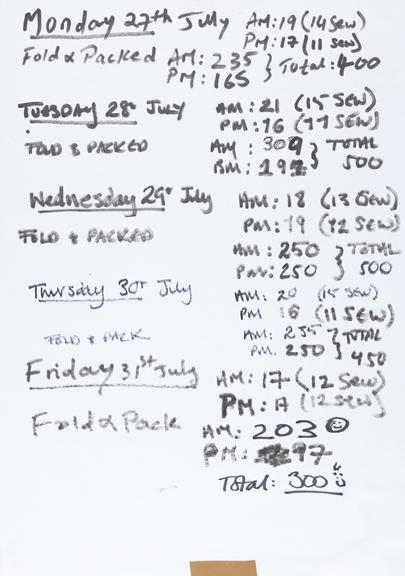 Monday 27th July AM: 19 (14 Sew)
PM: 17 (11 sew)
Fold & Packed AM: 235 } Total: 400
PM: 165
TUESDAY 28t JULY AM: 21 (15 SEW)
PM: 16 (11 SEW)
FOLD & PACKED AM: 309 } TOTAL
PM: 191 500
Wednesday 29t July AM: 18 (13 Sew)
PM: 19 (12 SEW)
FOLD & PACKED AM: 250 } TOTAL
PM: 250 500
Thursday 30t July AM: 20 (15 SEW)
PM 16 (11 SEW)
FOLD & PACK AM: 235 } TOTAL
PM. 250 450
Friday 31st July AM: 17 (12 Sew)
PM: 17 (12 sew)
Fold & Pack AM: 203
PM: 97
Total: 300